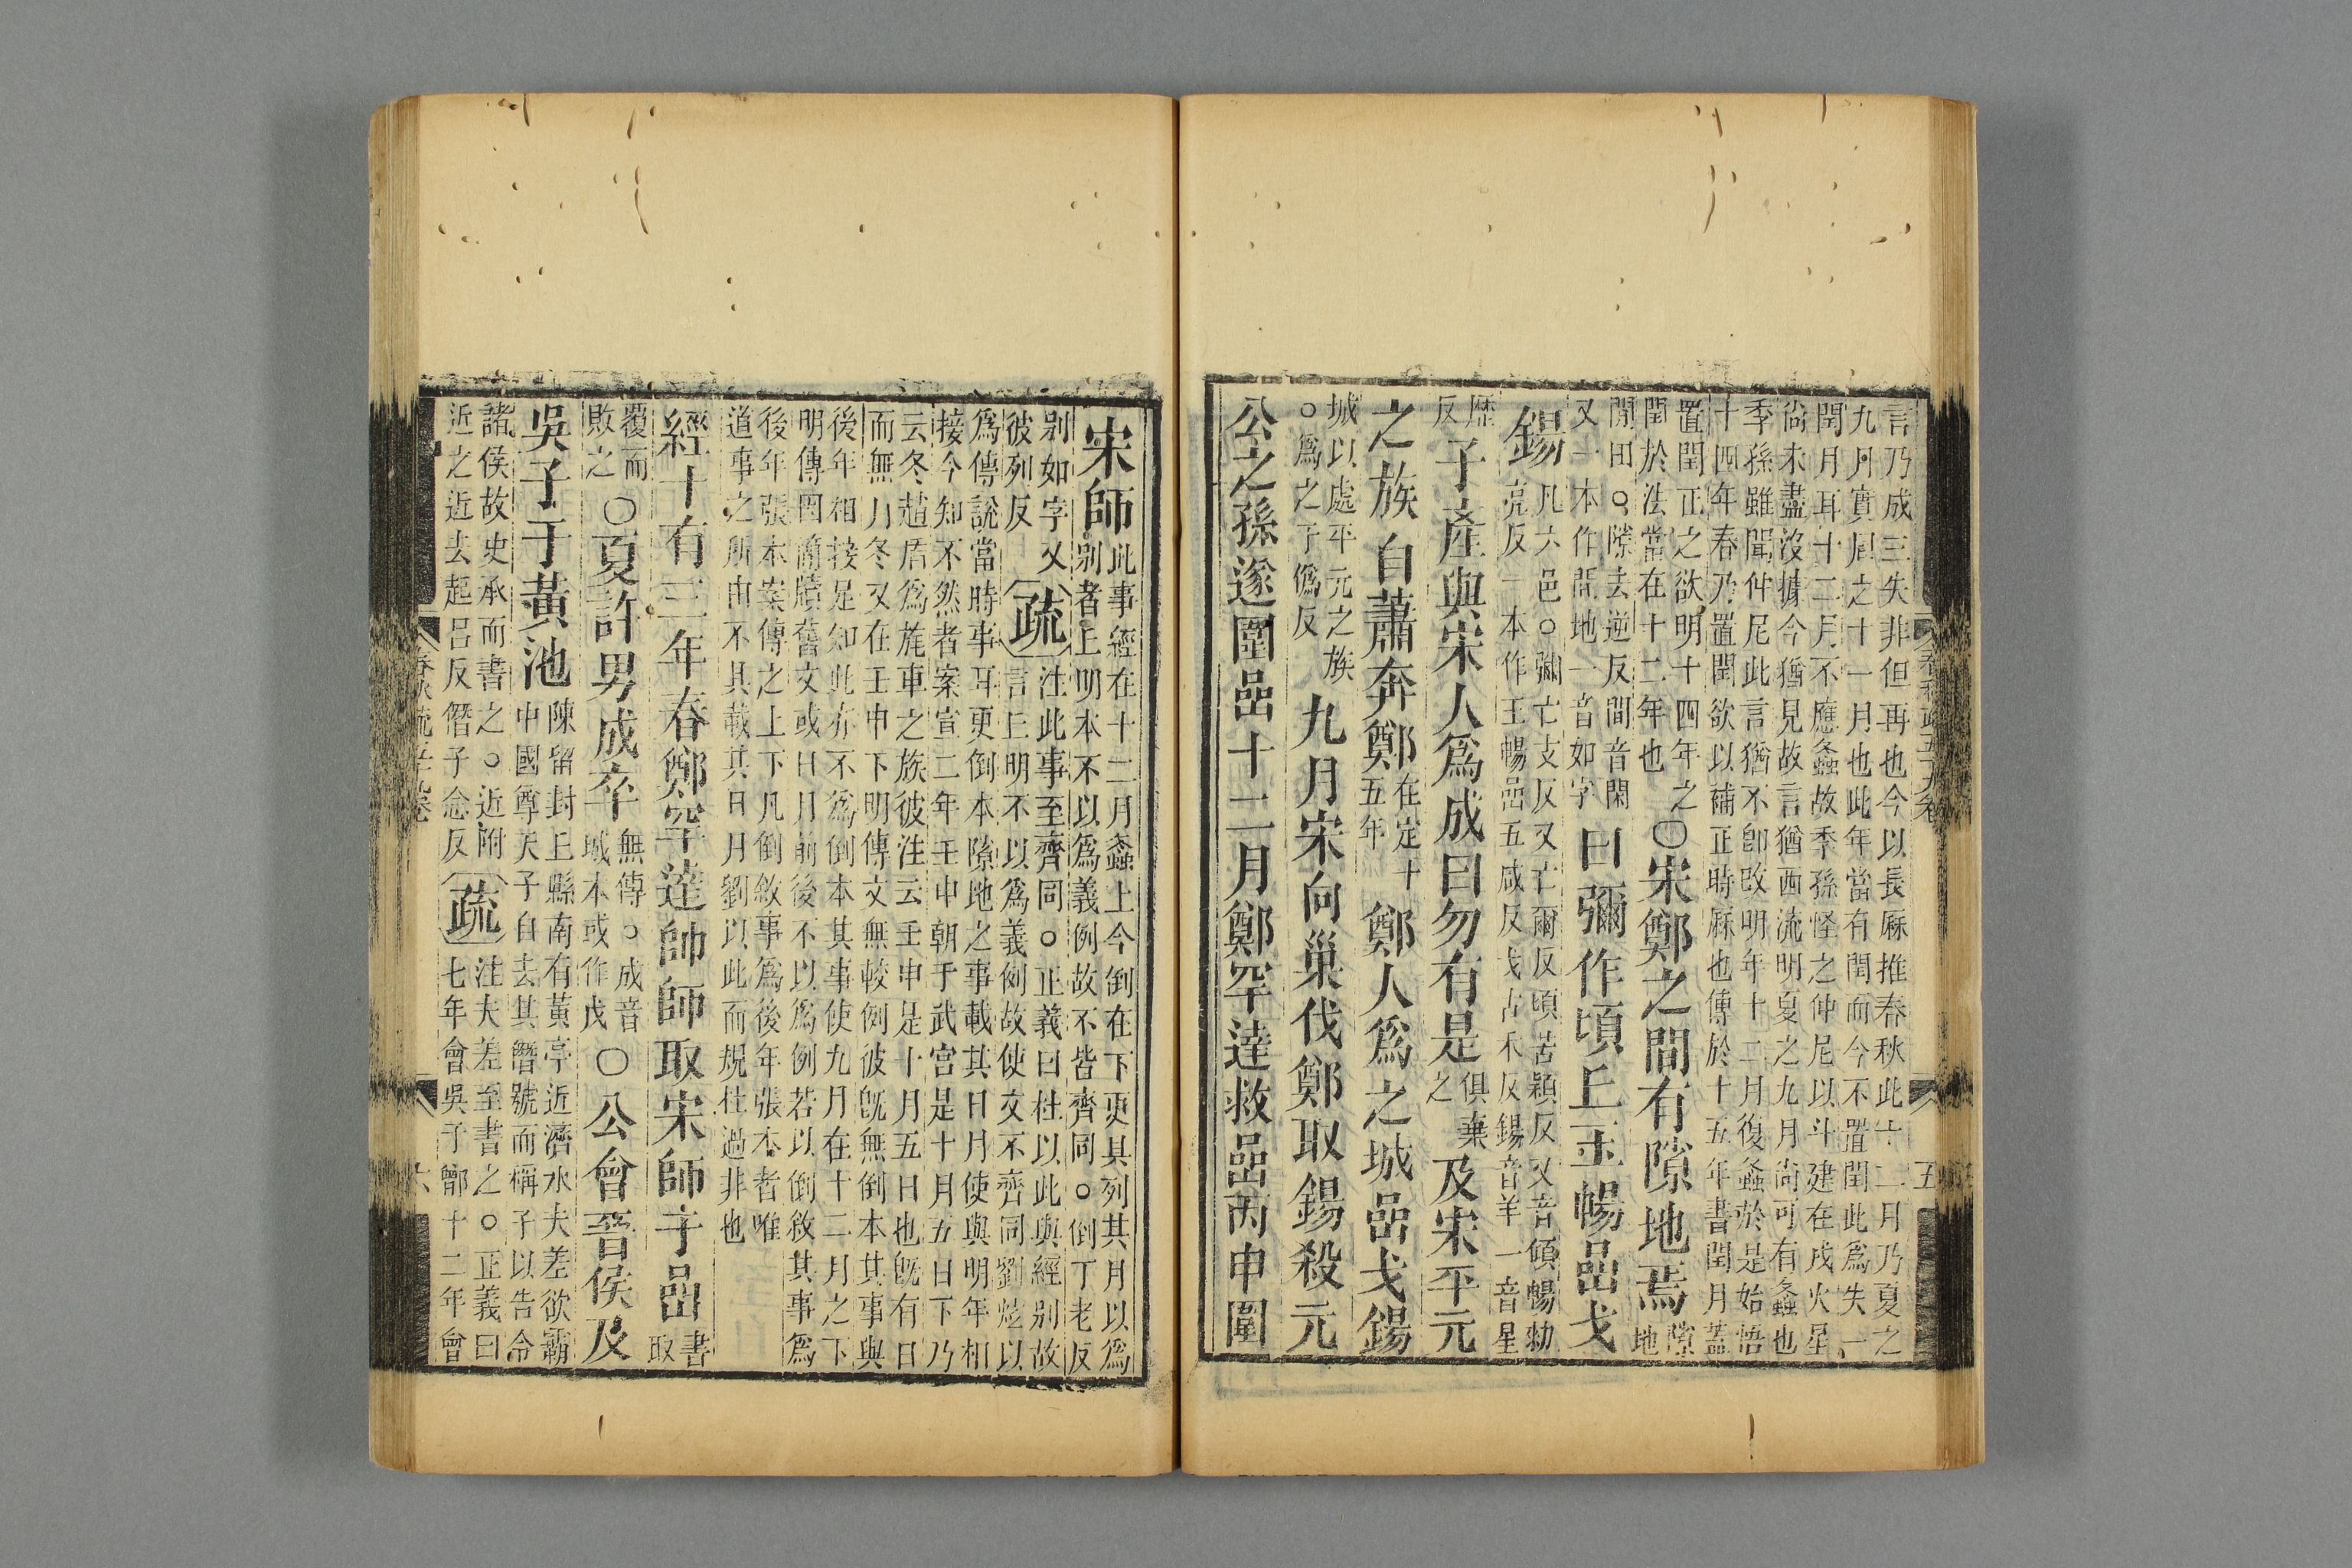 言乃成三失非但再也今以長厤推春秋此十二月乃夏之
九月實周之十一月也此年當有閏而今不置閏此爲失一
閏月耳十二月不應螽故季孫怪之仲尼以斗建在戌火星
尚未盡沒據今猶見故言猶西流明夏之九月尚可有螽也
季孫雖聞仲尼此言猶不卽改明年十二月復螽於是始悟
十四年春乃置閏欲以補正時厤也傳於十五年書閏月蓋
置閏正之欲明十四年之
閏於法當在十二年也
〇宋鄭之間有隙地焉
隙地
閒田。隙去逆反間音閑
又一本作閒地一音如字
曰彌作頃丘玉暢嵒戈
錫
凡六邑。彌亡支反又亡爾反頃苦穎反又音傾暢勑
亮反一本作王暢嵒五咸反戈古禾反錫音羊一音星
歷
反
子產與宋人爲成曰勿有是
俱棄
之
及宋平元
之族自蕭奔鄭
在定十
五年
鄭人爲之城嵒戈錫
城以處平元之族
。爲之于僞反
九月宋向巢伐鄭取錫殺元
公之孫遂圍嵒十二月鄭罕達救嵒丙申圍
宋師
此事經在十二月螽上今倒在下更具列其月以爲
別者上明本不以爲義例故不皆齊同。倒丁老反
別如字又
彼列反
疏
注此事至齊同。正義曰杜以此與經別故
言上明不以爲義例故使文不齊同劉炫以
爲傳說當時事耳更倒本隙地之事載其日月使與明年相
接今知不然者案宣二年壬申朝于武宮是十月五日下乃
云冬趙盾爲旄車之族彼注云壬申是十月五日也旣有日
而無月冬又在壬申下明傳文無較例彼旣無倒本其事與
後年相接是知此亦不爲倒本其事使九月在十二月之下
明傳因簡牘舊文或日月前後不以爲例若以倒敘其事爲
後年張本案傳之上下凡倒敘事爲後年張本者唯
道事之所由不具載其日月劉以此而規杜過非也
經十有三年春鄭罕達帥師取宋師于嵒
書
取
覆而
敗之
〇夏許男成卒
無傳。成音
城本或作戌
〇公會晉侯及
吳子于黃池
陳留封丘縣南有黃亭近濟水夫差欲霸
中國尊天子自去其僭號而稱子以告令
諸侯故史承而書之。近附
近之近去起呂反僭子念反
疏
注夫差至書之。正義曰
七年會吳于鄫十二年會